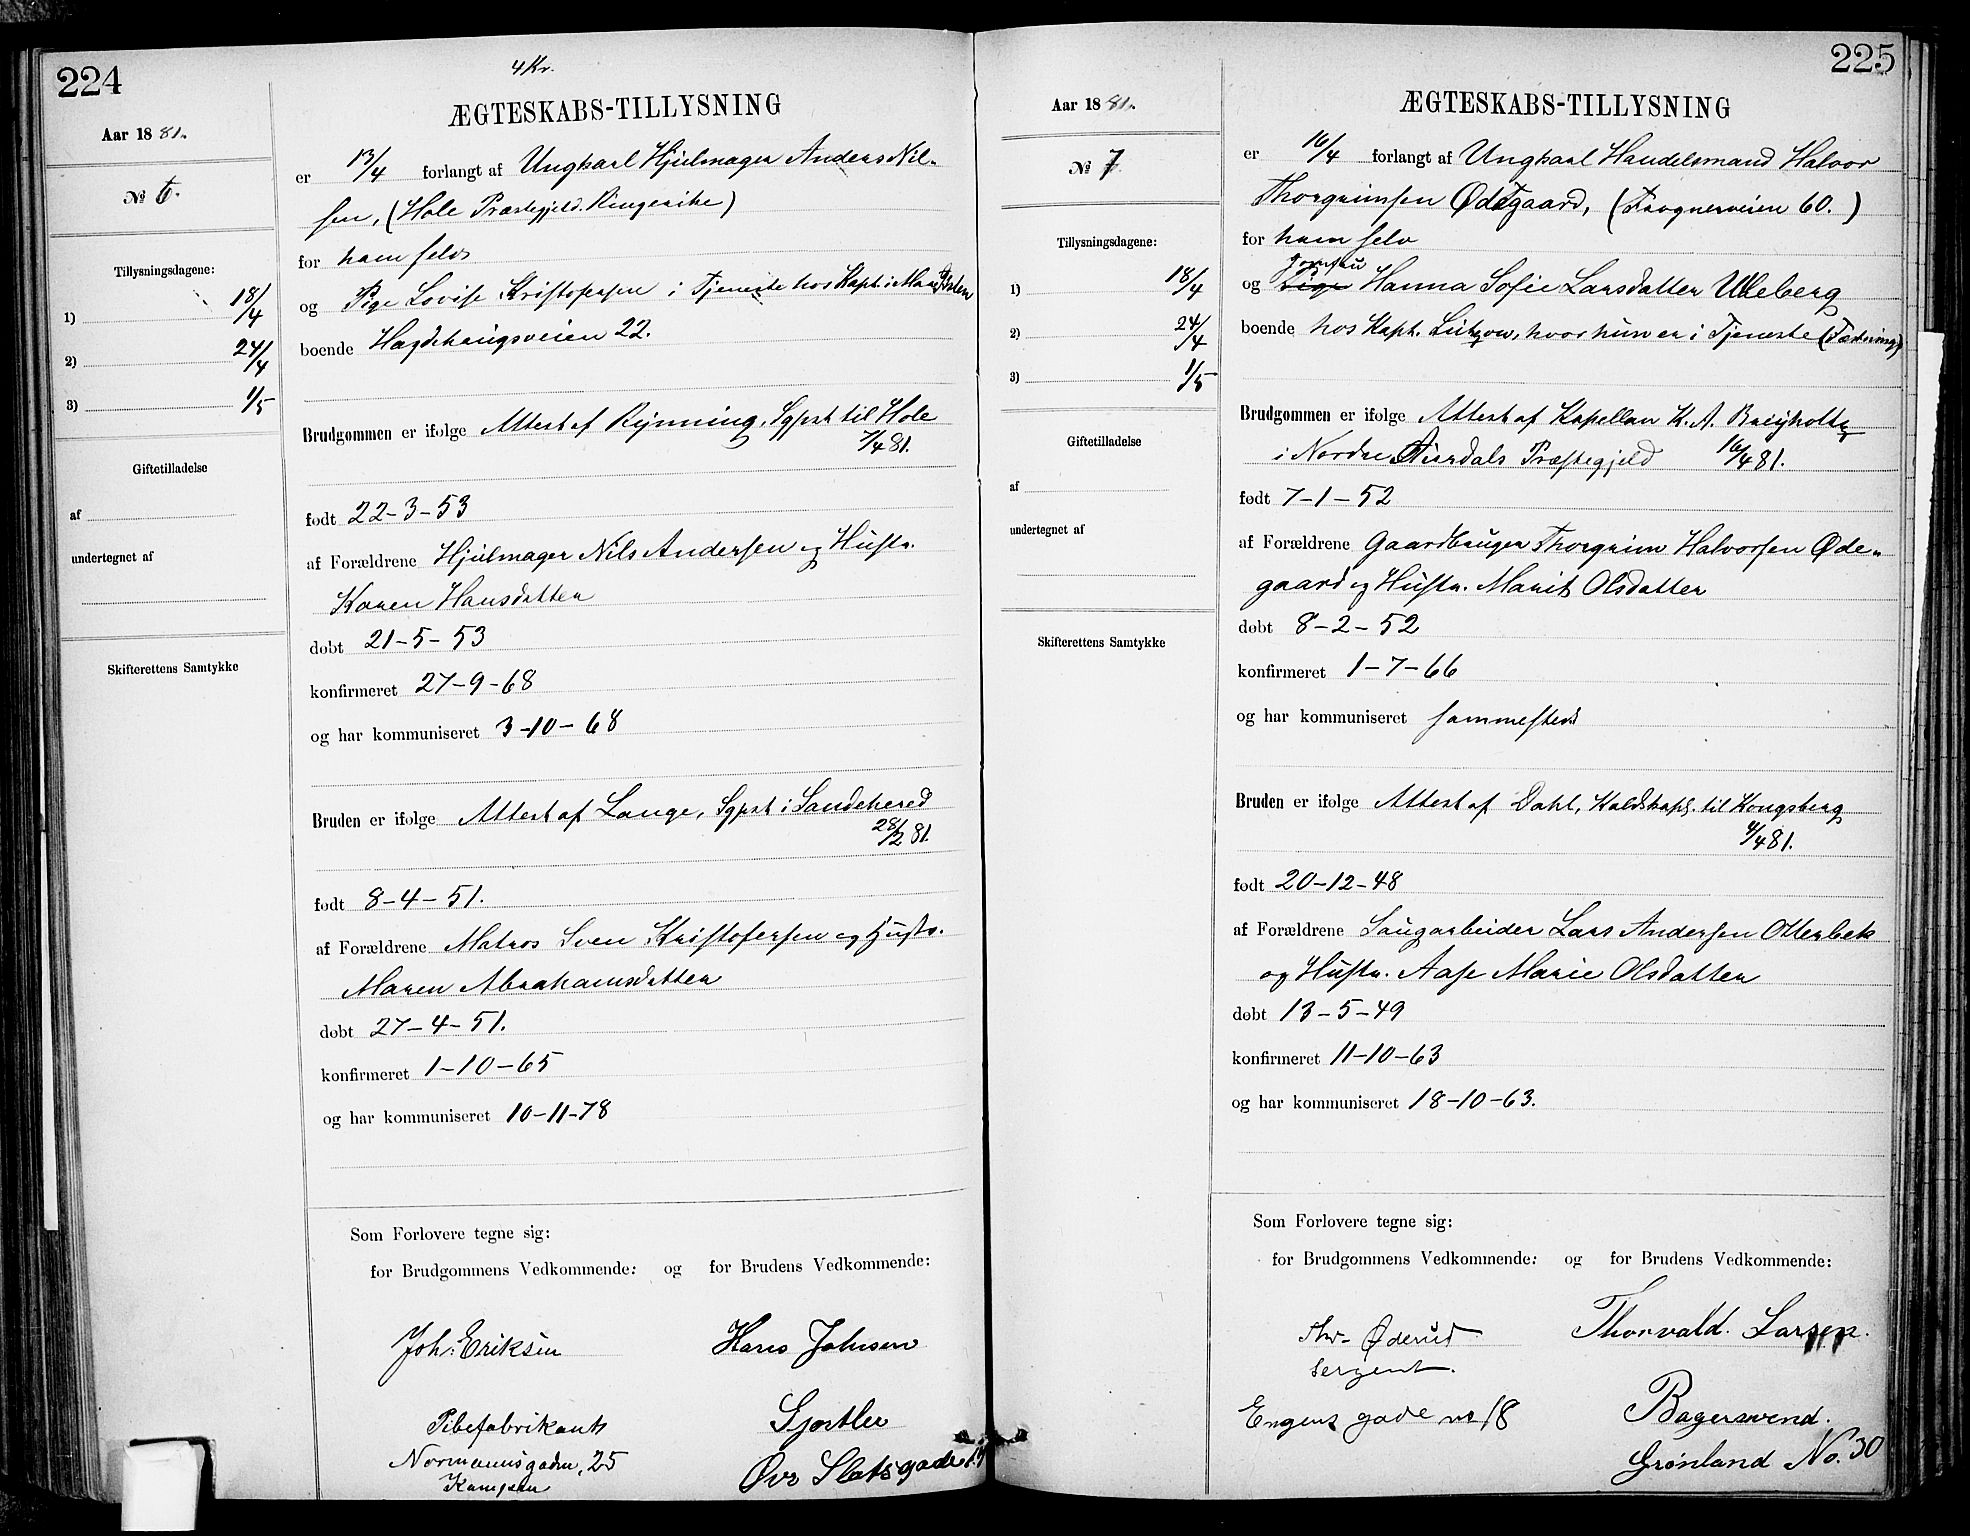 224
4 Kr.
ÆGTESKABS-TILLYSNING
Aar 1881.
№ 6.
Tillysningsdagene:
1) 18/4
2) 24/4
3) 1/5
Giftetilladelse
af
undertegnet af
Skifterettens Samtykke
er 13/4 forlangt af Ungkarl Hjulmager Anders Nil-
sen, (Hole Præstegjeld. Ringerike)
for ham selv
og Pige Lovise Kristofersen i Tjeneste hos Kapt.
boende Hægdehaugsveien 22.
Brudgommen er ifølge Attest af Rynning, Sgpst til Hole
7/4 81.
født 22-3-53
af Forældrene Hjulmager Nils Andersen og Hustr.
Karen Hansdatter
døbt 21-5-53
konfirmeret 27-9-68
og har kommuniseret 3-10-68
Bruden er ifølge Attest af Lange, Sgpst i Sandehered
28/2 81.
født 8-4-51.
af Forældrene Matros Sven Kristofersen og Hustr.
Maren Abrahamsdatter
døbt 27-4-51.
konfirmeret 1-10-65
og har kommuniseret 10-11-78
Som Forlovere tegne sig:
for Brudgommens Vedkommende: og for Brudens Vedkommende:
Joh. Eriksen Hans Johnsen
Pibefabrikant
Normannsgaden, 25
Kampen
Øvr Slotsgade 17
225
ÆGTESKABS-TILLYSNING
Aar 1881.
№ 7
Tillysningsdagene:
1) 18/4
2) 24/4
3) 1/5
Giftetilladelse
af
undertegnet af
Skifterettens Samtykke
er 16/4 forlangt af Ungkarl Handelsmand Halvor
Thorgrimsen Ødegaard, (Frognerveien 60.)
for ham selv
Jomfru
og Pige Hanna Sofie Larsdatter Ulleberg
boende hos Kapt. Lützow, hvor hun er i Tjeneste (Fæstning)
Brudgommen er ifølge Attest af Kapellan K. A.
i Nordre Aurdals Præstegjeld 16/4 81.
født 7-1-52
af Forældrene Gaardbruger Thorgrim Halvorsen Øde-
gaard og Hustr. Marit Olsdatter
døbt 8-2-52
konfirmeret 1-7-66
og har kommuniseret sammesteds
Bruden er ifølge Attest af Dahl, Kaldskapl. til Kongsberg
4/4 81.
født 20-12-48
af Forældrene Saugarbeider Lars Andersen Otterbek
og Hustr. Aase Marie Olsdatter
døbt 13-5-49
konfirmeret 11-10-63
og har kommuniseret 18-10-63.
Som Forlovere tegne sig:
for Brudgommens Vedkommende: og for Brudens Vedkommende:
Øderud Thorvald. Larsen.
sergent.
Engens gade no 18 Bagersvend.
Grønland No. 30